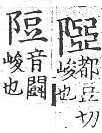 都豆切
峻也
音闘
峻也